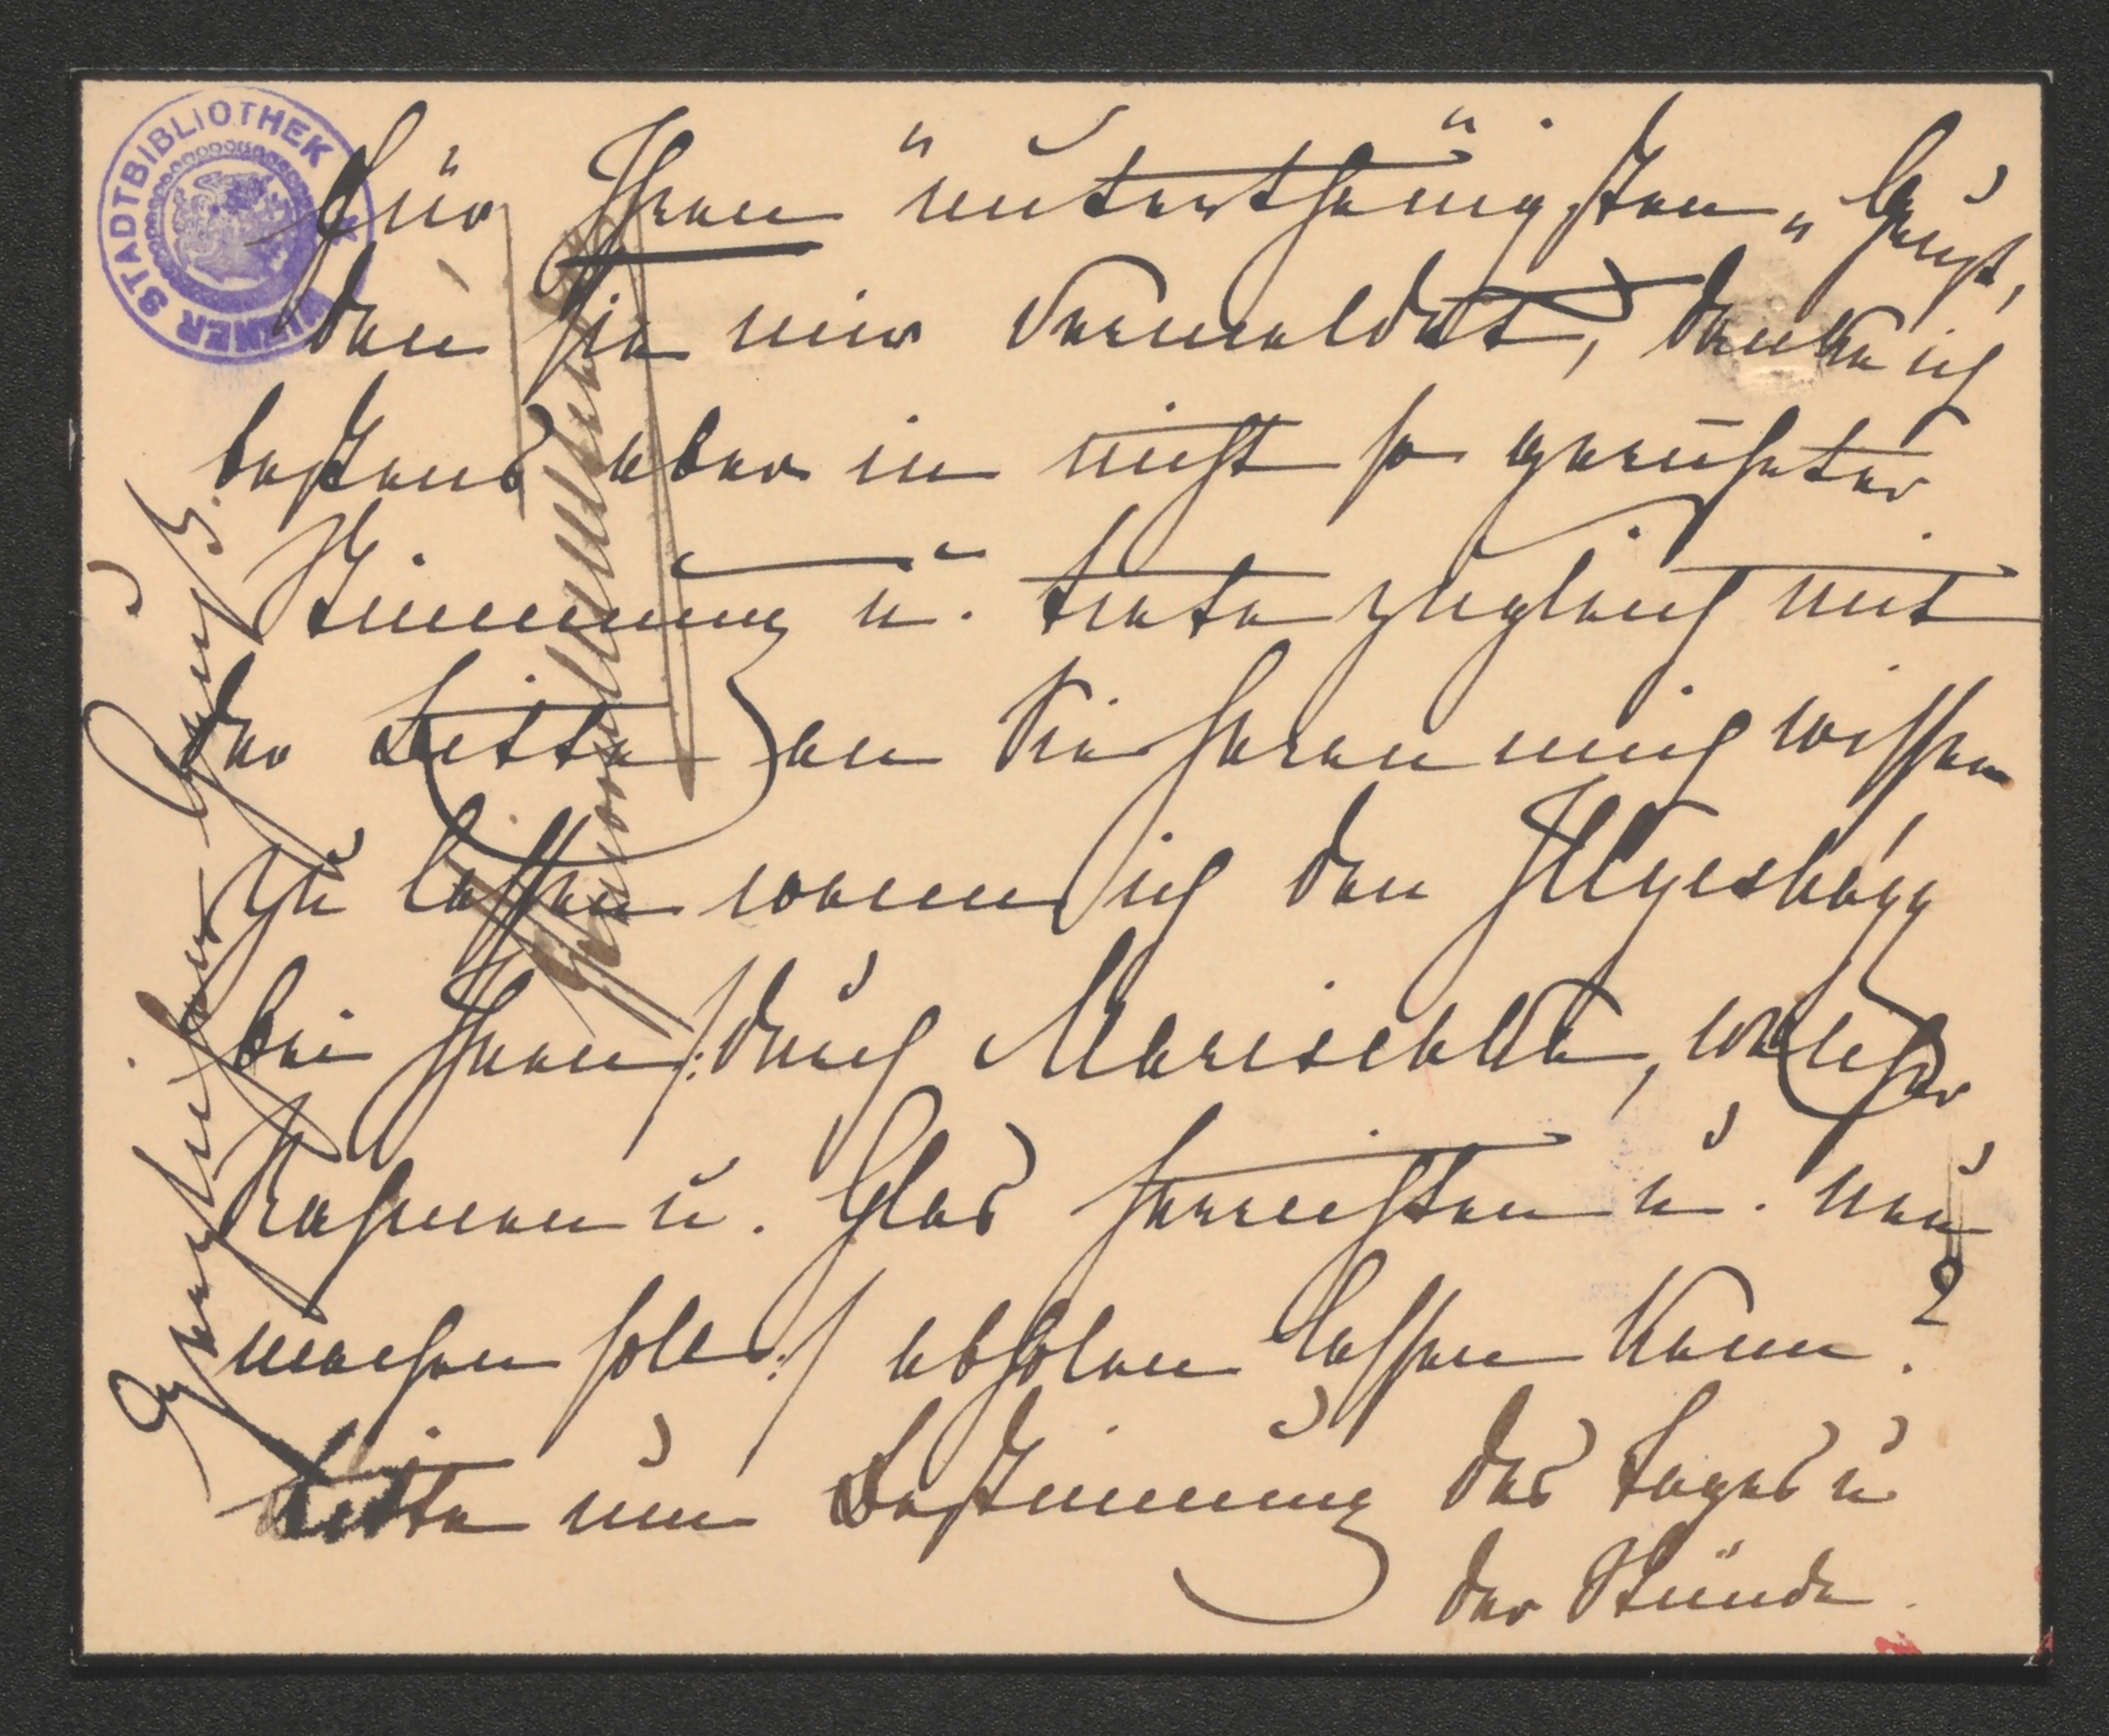 WIENER STADTBIBLIOTHEK
Für Ihren "unterthänigsten" Gruß,
den Sie mir vermeldet, danke ich
bestens aber in nicht so geruhter
Stimmung u. trete zugleich mit
der Bitte an Sie heran mich wissen
zu lassen wann ich den
bei Ihnen /: durch Marischka, welcher
Rahmen u. Glas herrichten u. neu
machen soll :/ abholen lassen kann?
Bitte um Bestimmung des Tages u
der Stunde.
Gruß